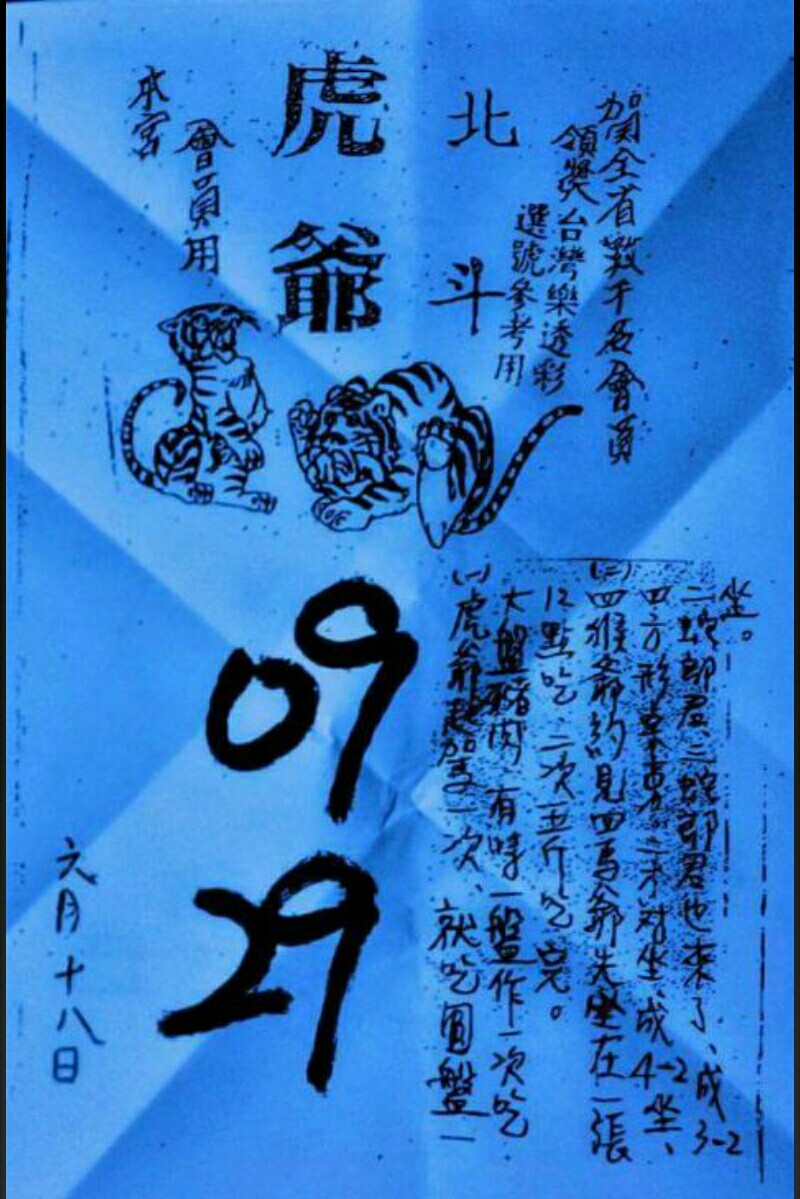 賀全省數千名會員
領獎台灣樂透彩
選號參考用
北斗
虎爺
本宮
會員用
09
29
(一)虎爺起駕一次、就吃圓盤一
大盤豬肉、有時一盤作一次吃
12點吃、二次五斤吃完。
(二)四猴爺約見四馬爺先坐在一張
四方形桌 對坐、成4-2坐、
二蛇郎君、三蛇郎君也來了、成3-2
坐。
六月十八日